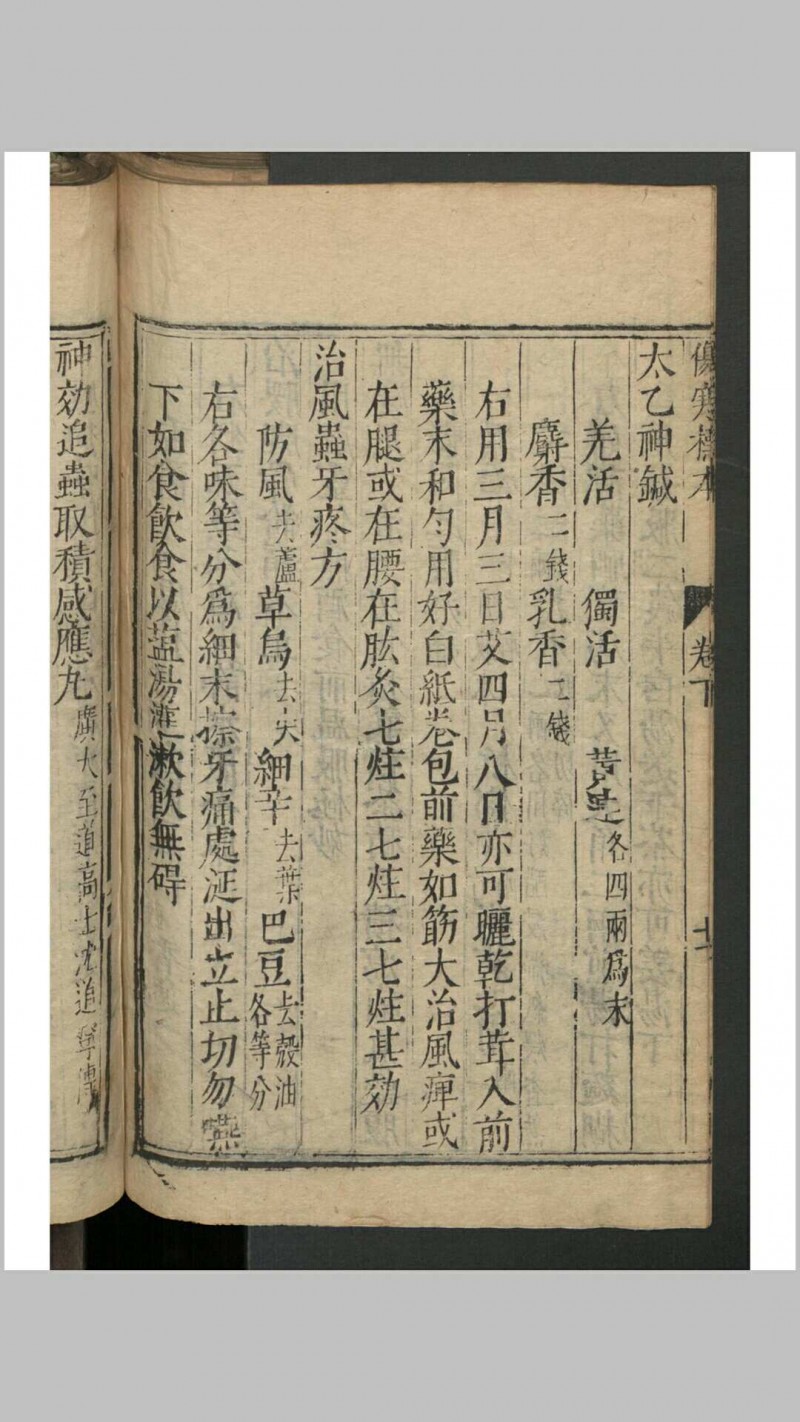 傷寒標本 卷下 十一
太乙神鍼
羌活 獨活 黄連各四兩爲末
麝香二錢 乳香二錢
右用三月三日艾四月八日亦可曬乾打茸入前
藥末和勻用好白紙卷包前藥如筯大治風痺或
在腿或在腰在肱灸七炷二七炷三七炷甚効
治風蟲牙疼方
防風去蘆 草烏去尖 細辛去葉 巴豆去殼油各等分
右各味等分爲細末擦牙痛處涎出立止切勿嚥
下如食飲食以盬湯漱飲無碍
神効追蟲取積感應丸廣大至道高士沈追